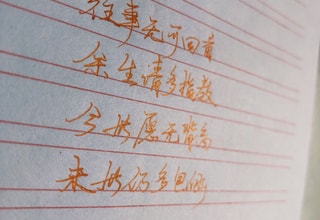 往事无可回首
余生请多指教
今世愿无背离
来世仍多包涵